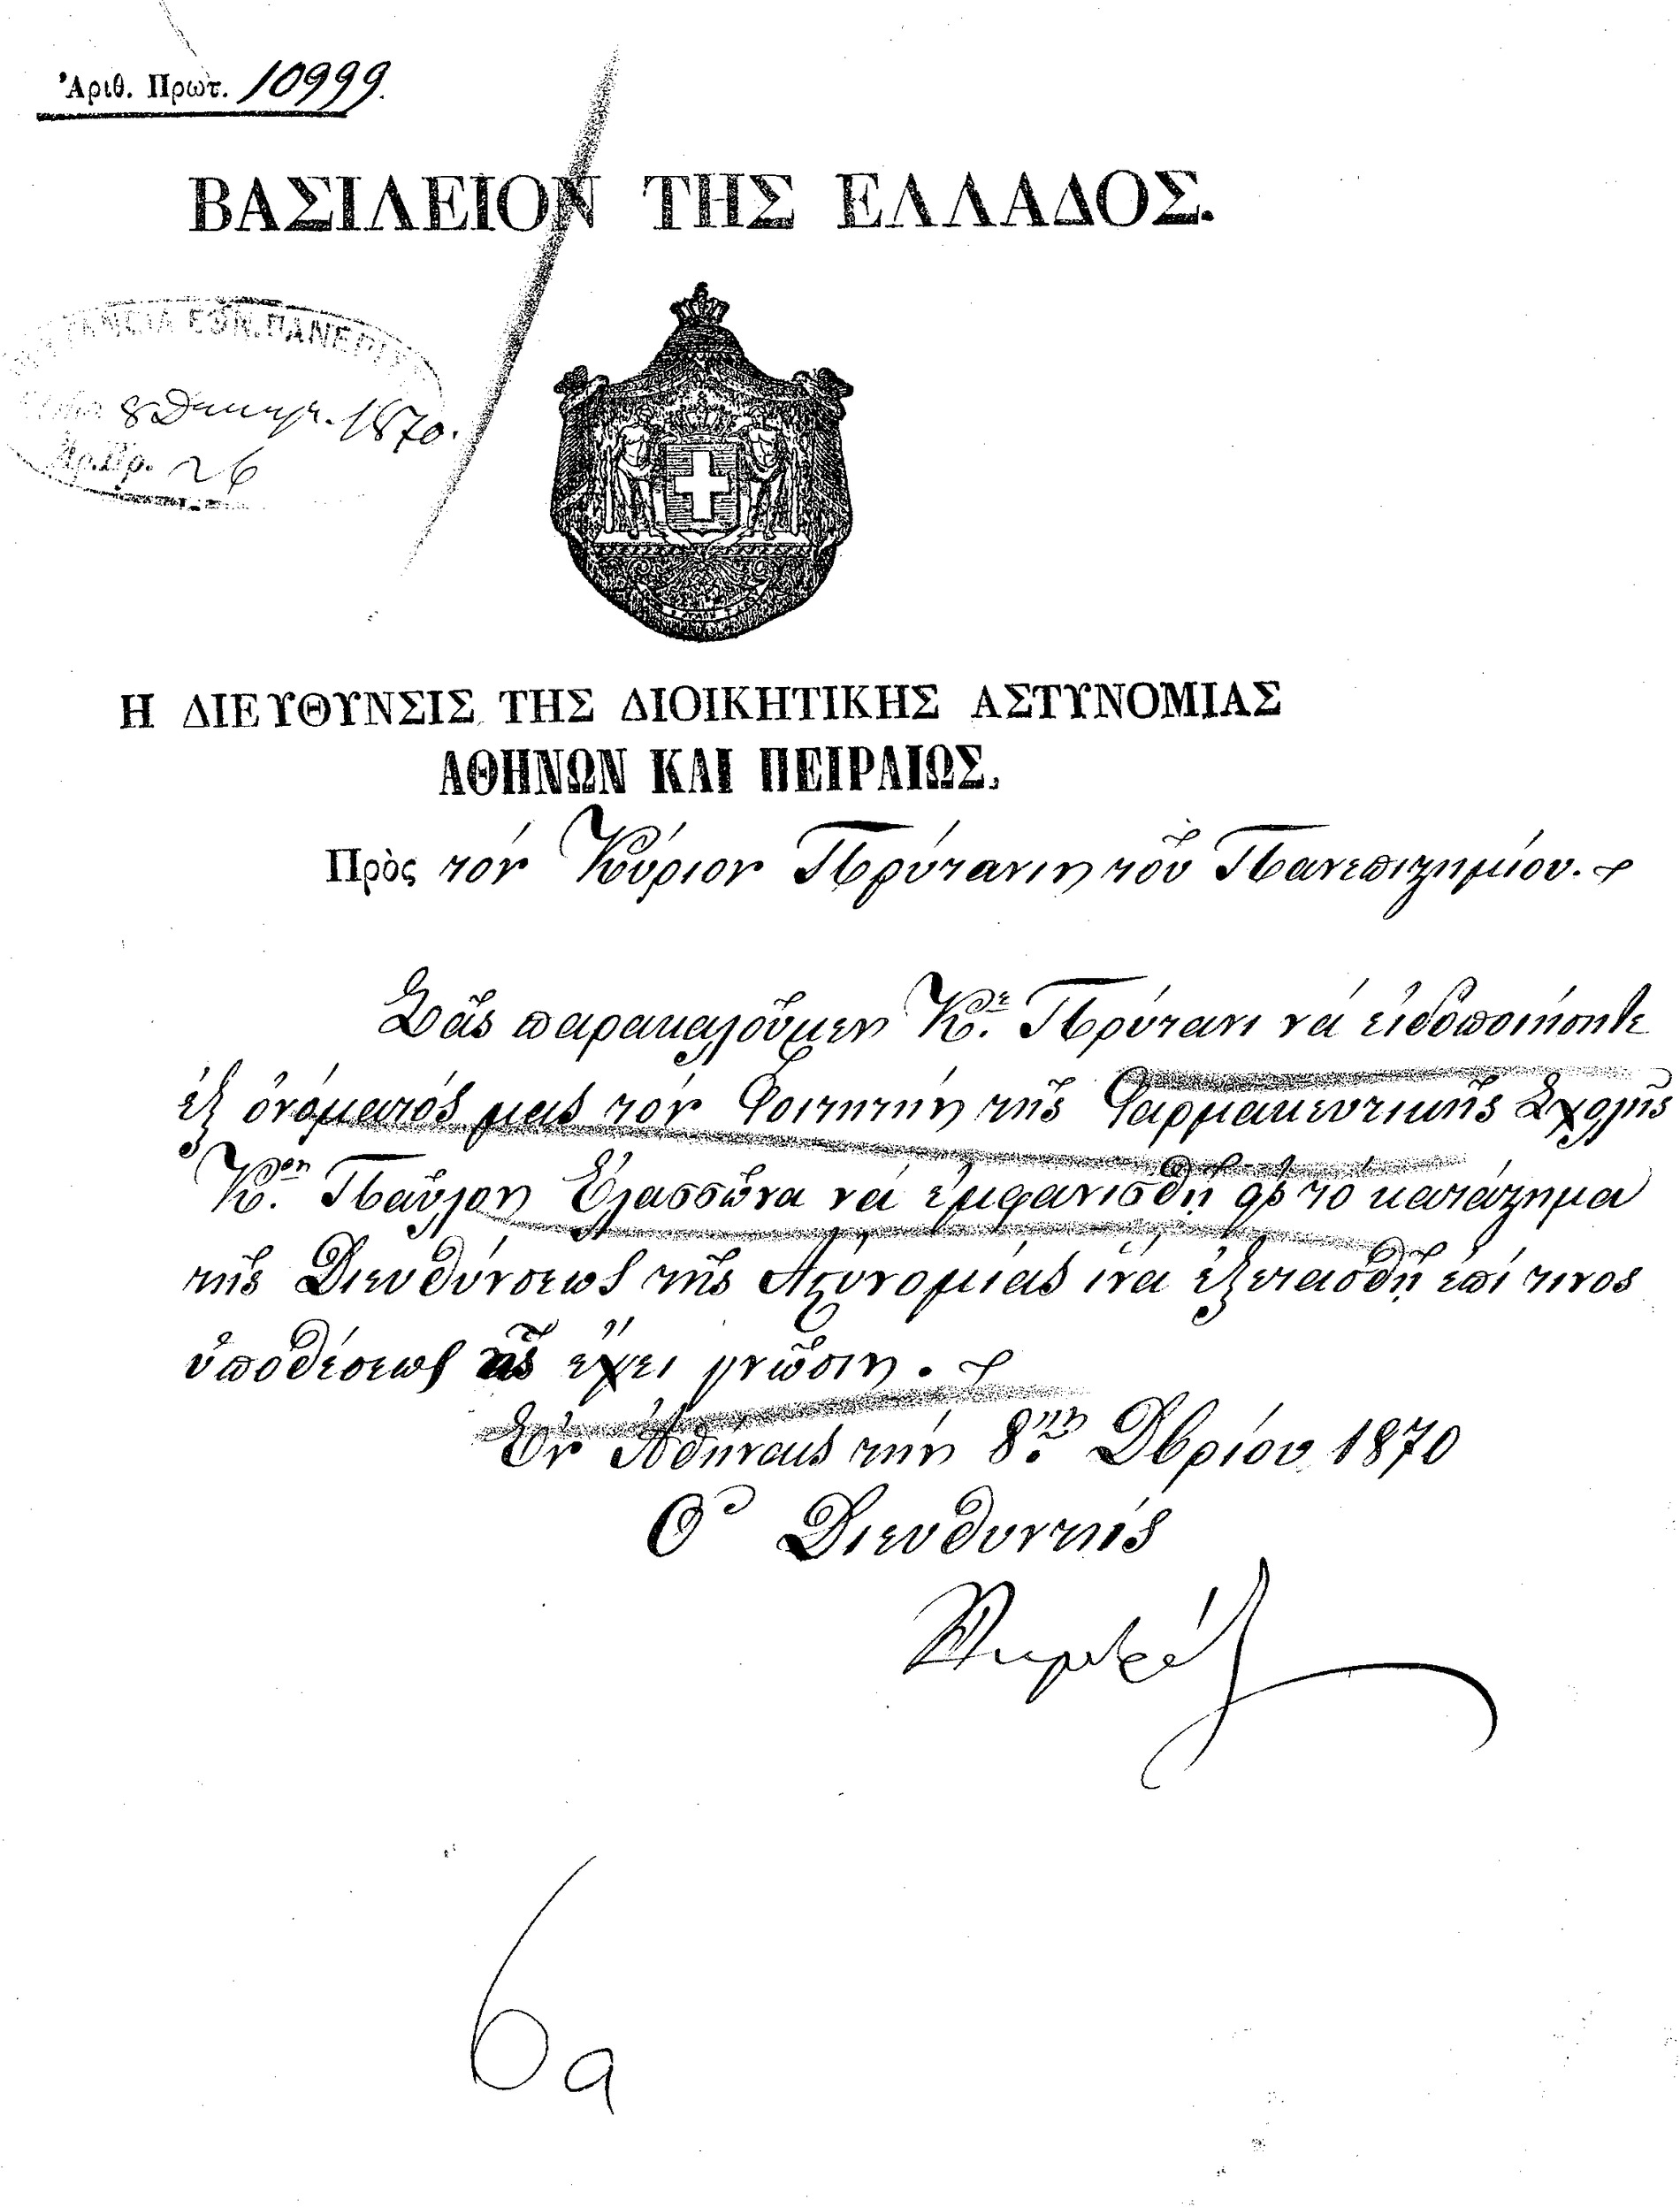 Ἀριθ. Πρωτ. 10999.
ΒΑΣΙΛΕΙΟΝ ΤΗΣ ΕΛΛΑΔΟΣ.
ΕΘΝ. ΠΑΝΕΠΙΣ
8 1870.
Ἀρ. Πρ. 26
Η ΔΙΕΥΘΥΝΣΙΣ ΤΗΣ ΔΙΟΙΚΗΤΙΚΗΣ ΑΣΤΥΝΟΜΙΑΣ
ΑΘΗΝΩΝ ΚΑΙ ΠΕΙΡΑΙΩΣ.
Πρὸς τόν Κύριον Πρύτανιν τοῦ Πανεπιστημίου.
Σᾶς παρακαλοῦμεν Κε. Πρύτανι νά εἰδοποιήσητε
ἐξ ὀνόματός μας τόν Φοιτητήν τῆς Φαρμακευτικῆς Σχολῆς
Κον. Παῦλον Ἐλασσῶνα νά ἐμφανισθῇ εἰς τό κατάστημα
τῆς Διευθύνσεως τῆς Ἀστυνομίας ἵνα ἐξετασθῇ ἐπί τινος
ὑποθέσεως ἧς ἔχει γνῶσιν.
Ἐν Ἀθήναις τήν 8ην. Δβρίου 1870
Ὁ Διευθυντής
6a